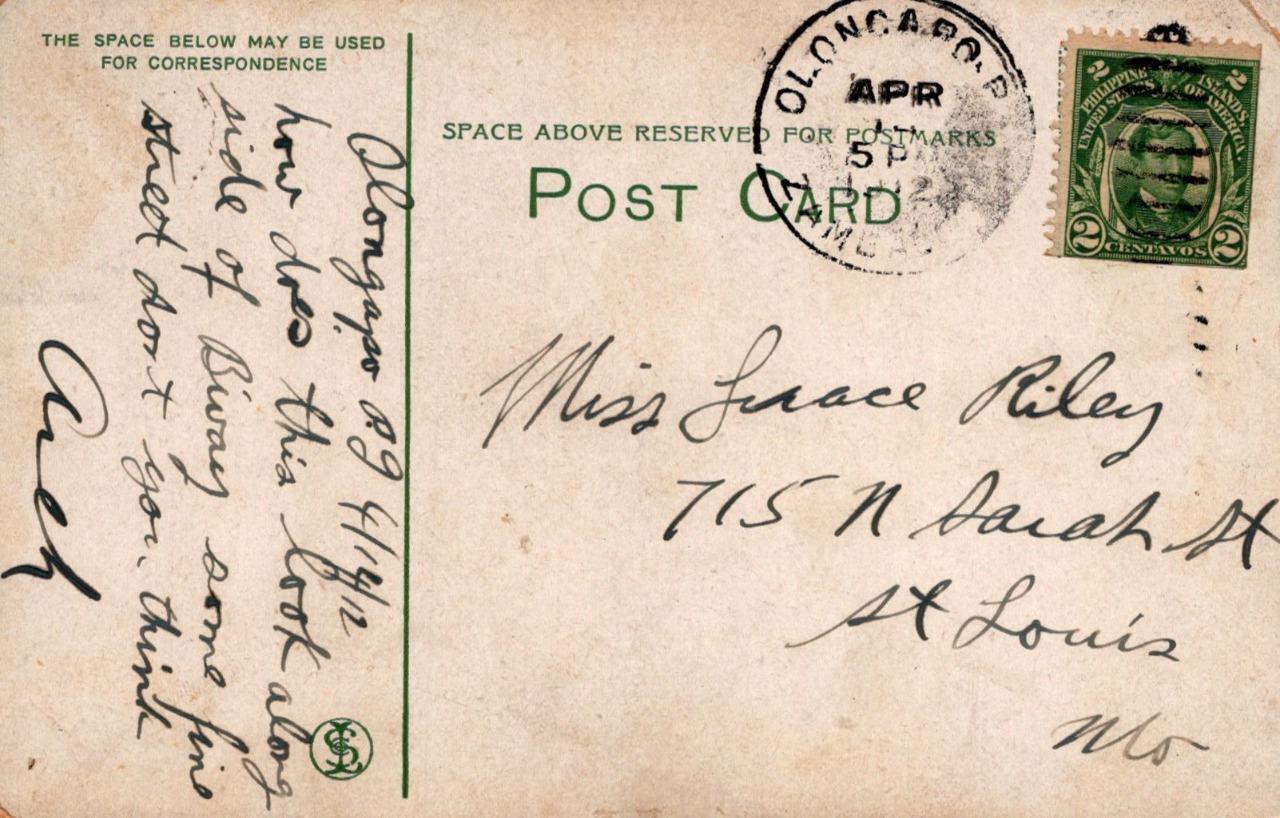 THE SPACE BELOW MAY BE USED
FOR CORRESPONDENCE
Olongapo P.I. 4/14/12
how does this look along
side of Biway some fine
street dont you think
Arch
SPACE ABOVE RESERVED FOR POSTMARKS
POST CARD
OLONGAPO, P
APR
5 P
ZAMBA
2 2
PHILIPPINE ISLANDS
UNITED STATES OF AMERICA
2 CENTAVOS 2
Miss Grace Riley
715 N Sarah St
St Louis
Mo